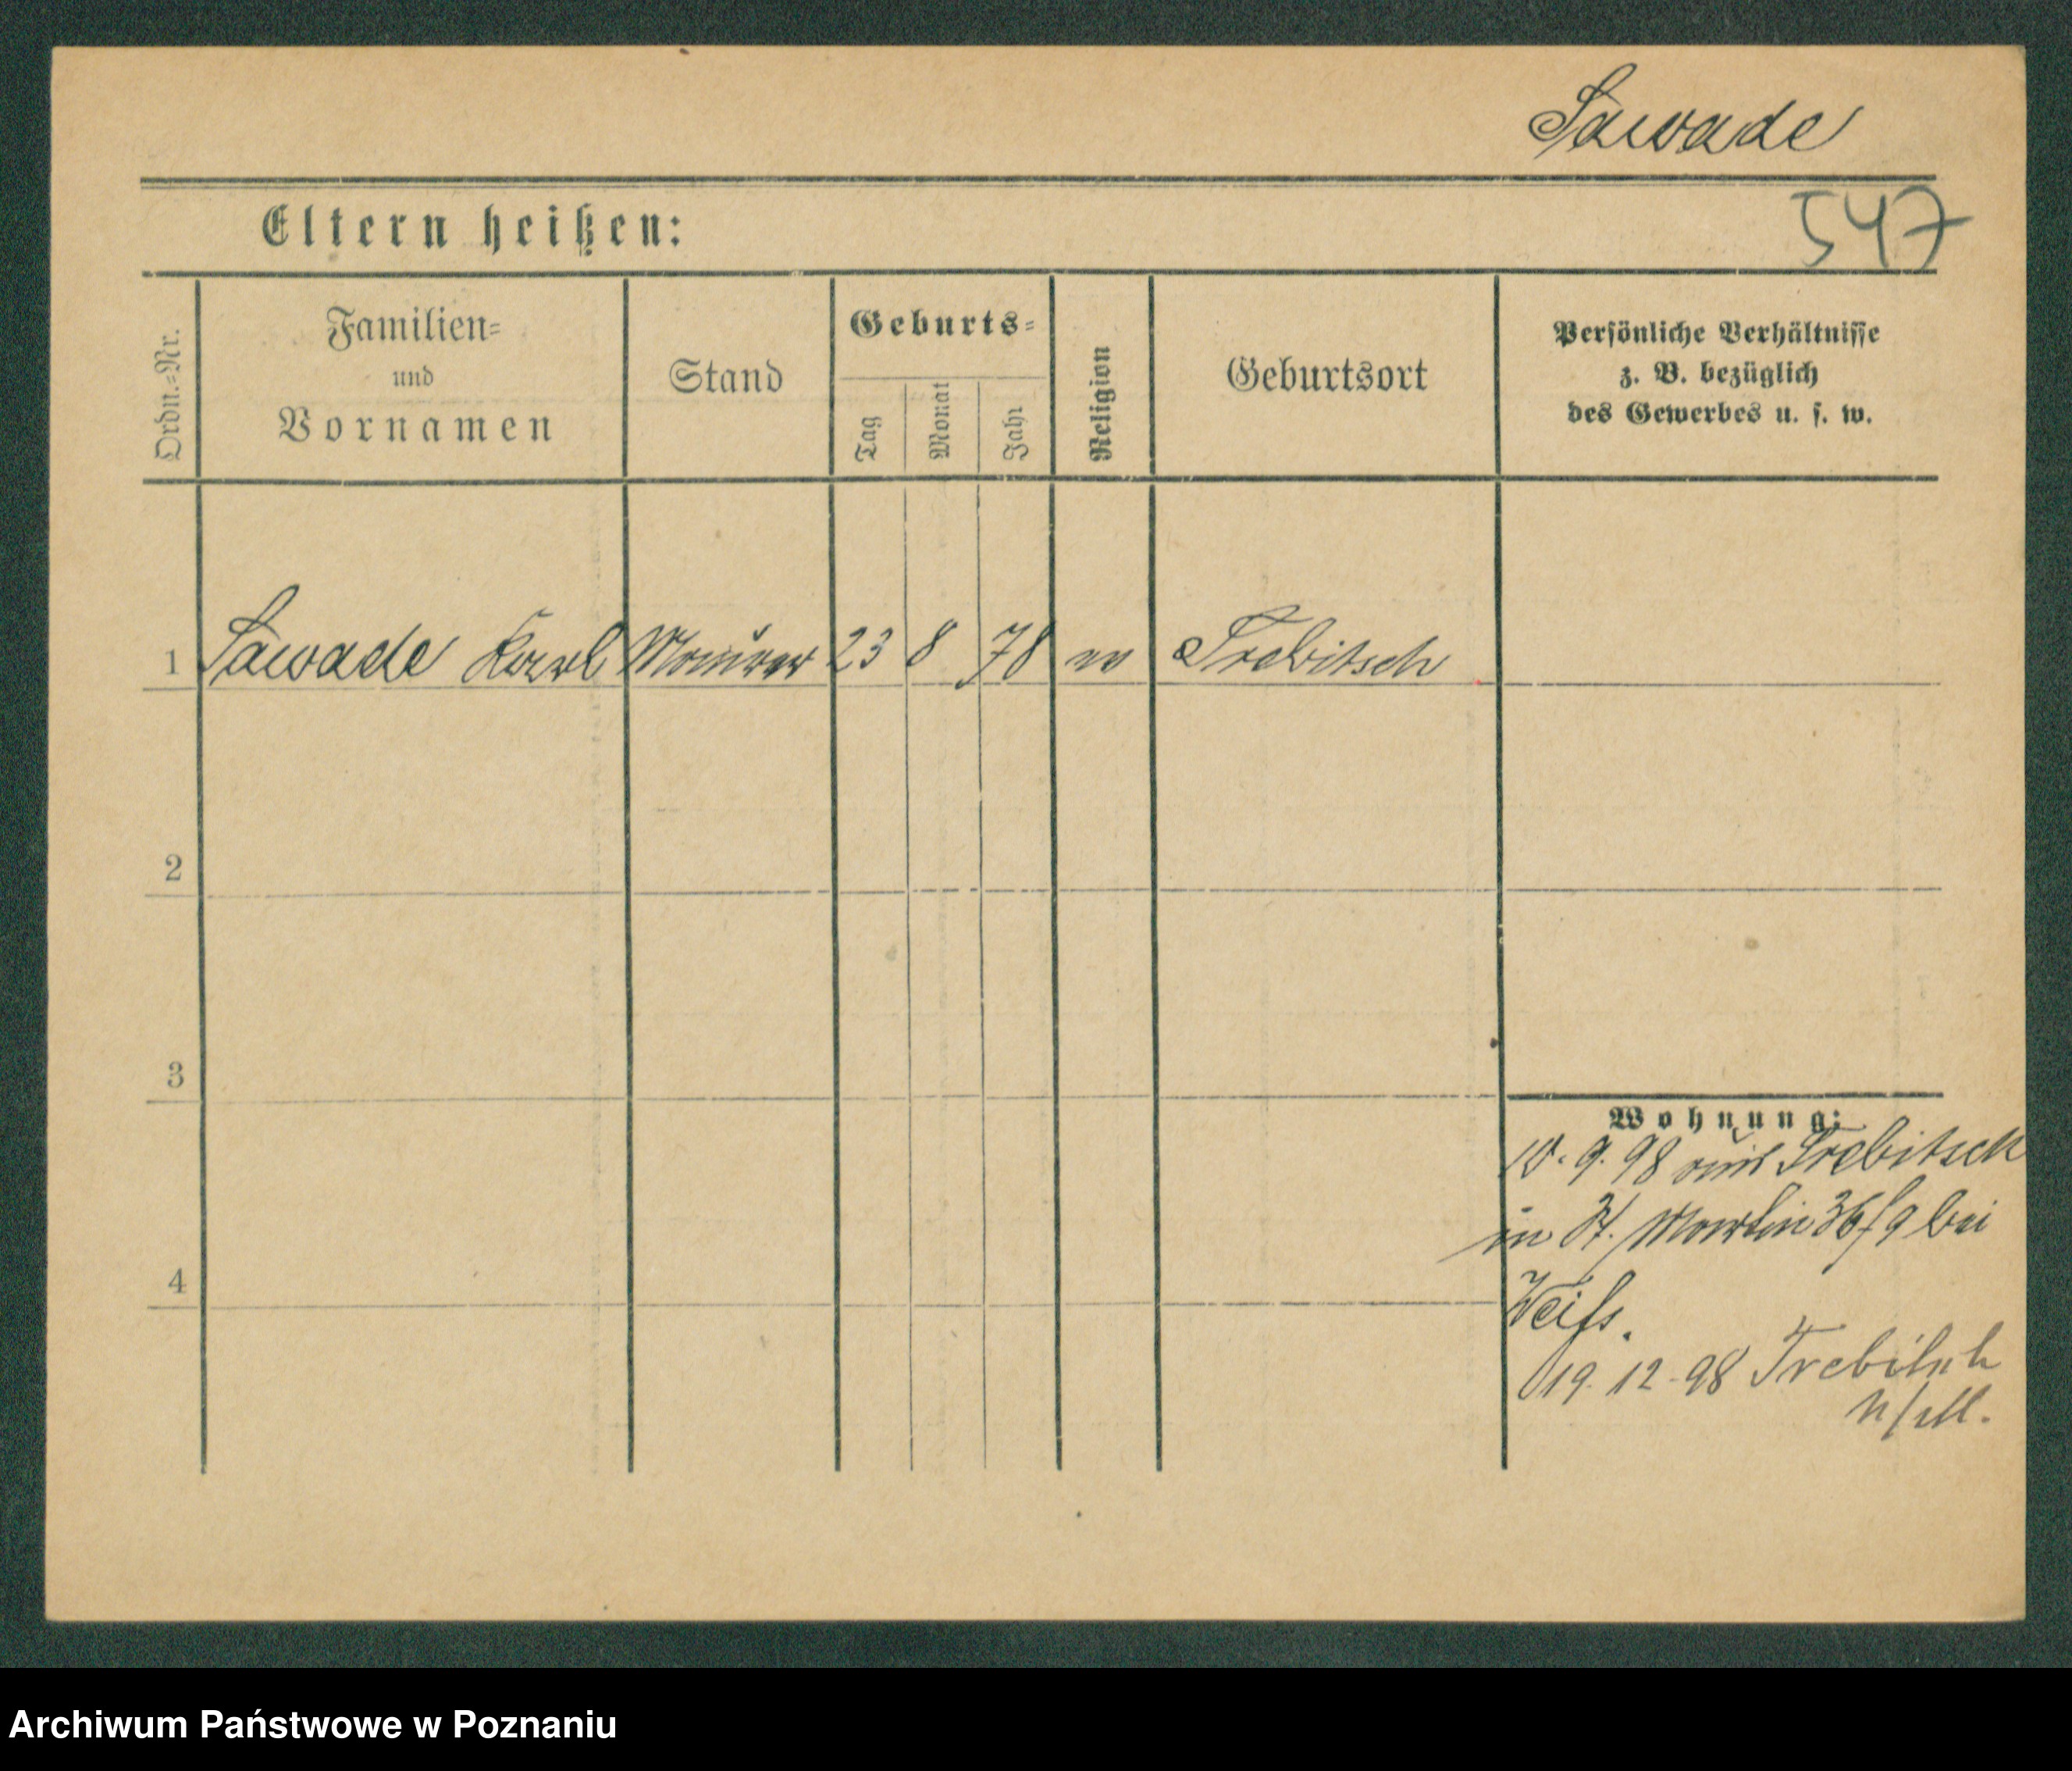 Sawade
547
Eltern heißen:
Ordn.-Nr.
Familien-
und
Vornamen
Stand
Geburts-
Tag
Monat
Jahr
Religion
Geburtsort
Persönliche Verhältnisse
z. B. bezüglich
des Gewerbes u. s. w.
1 Sawade Karl Maurer 23 8 78 ev Trebitsch
2
3
4
Wohnung:
10. 9. 98 aus Trebitsch
in St. Martin 36/9 bei
Weiss.
19. 12. 98 Trebitsch
Archiwum Państwowe w Poznaniu